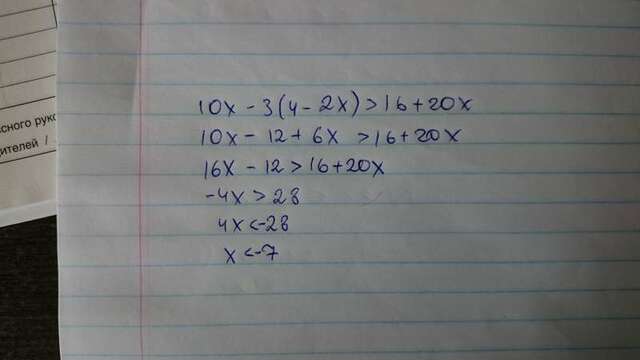 сного руко
дителей /
10x - 3(4 - 2x) > 16 + 20x
10x - 12 + 6x > 16 + 20x
16x - 12 > 16 + 20x
-4x > 28
4x < -28
x < -7